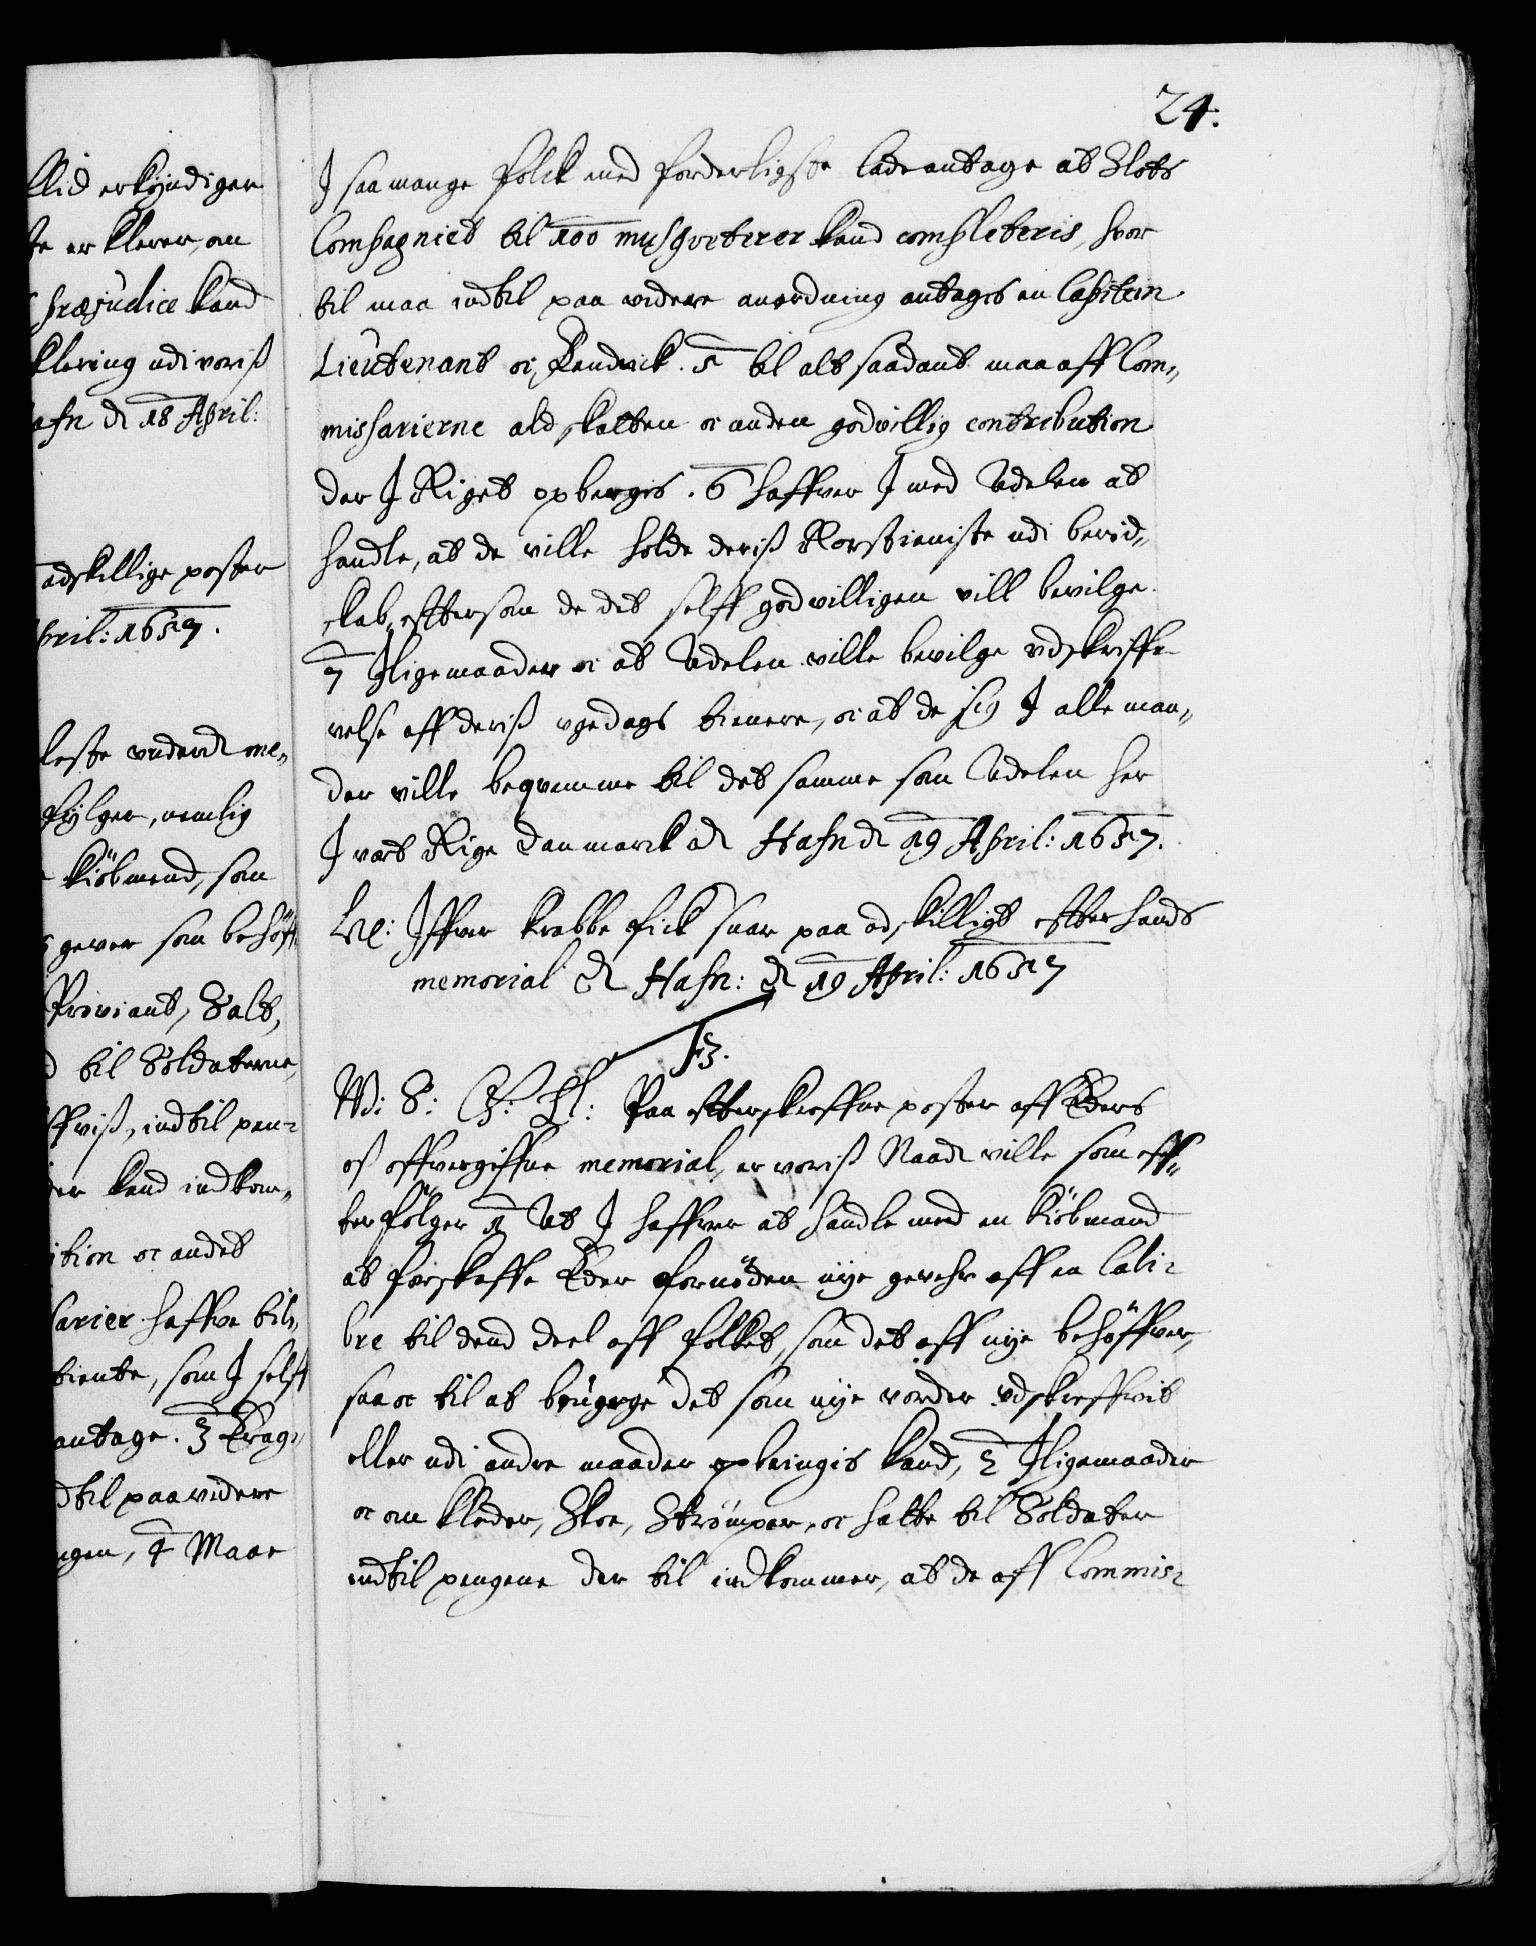 24.
llid erkyndiger
te erklerer, om
præjudice kand
klering udi voris
afn d 18 April:
adskillige poster
pril: 1657.
leste underd me„
fylger, nemlig
kiöbmend, som
gever som behöff„
Proviant, Salt,
til Soldaterne,
ffvis, indtil pen„
der kand indkom„
ition oc andet
sarier haffve til„
tiente, som J self
antage. 3 Krag„
dtil paa videre
ngen, 4 Maae
J saa mange folck med forderligste lade antage at Slots
Compagniet til 100 musqveterer kand completeris, hvor
til maa indtil paa videre anordning antagis en Capitein
Lieutenant oc Fendrick. 5 til alt saadant maa aff Com„
missarierne ald skatten oc anden godvillig contribution
der J Riget opbergis. 6 haffver J med Adelen at
handle, at de ville holde deris Rostieniste udi bered„
skab, eftersom de det self godvilligen vill bevilge.
7 Jligemaader oc at Adelen ville bevilge udskriffe„
velse aff deris ugedags tienere, oc at de sig J alle maa„
der ville beqvemme til det samme som Adelen her
J vort Rige Danmarck ad Hafn d 19 April: 1657.
Her: Jffver Krabbe fick svar paa adskilligt efter hands
memorial d Hafn: d 19 April: 1657
F3.
W: S: G: T: Paa efterskreffne poster aff Eders
os offvergiffne memorial, er voris Naad: ville som eff„
terfölger 1 At J haffver at handle med en kiöbmand
at forskaffe Eder fornöden nye gevehr aff en Cali„
bre til dend deel aff folket, som det aff nye behöffver,
saa oc til at bruge det som nye vorder udskreffvit
eller udi andre maader opbringis kand, 2 Jligemaader
oc om kleder, Skoe, Strömper, oc hatte til Soldater
indtil pengene der til indkommer, at de aff Commis„